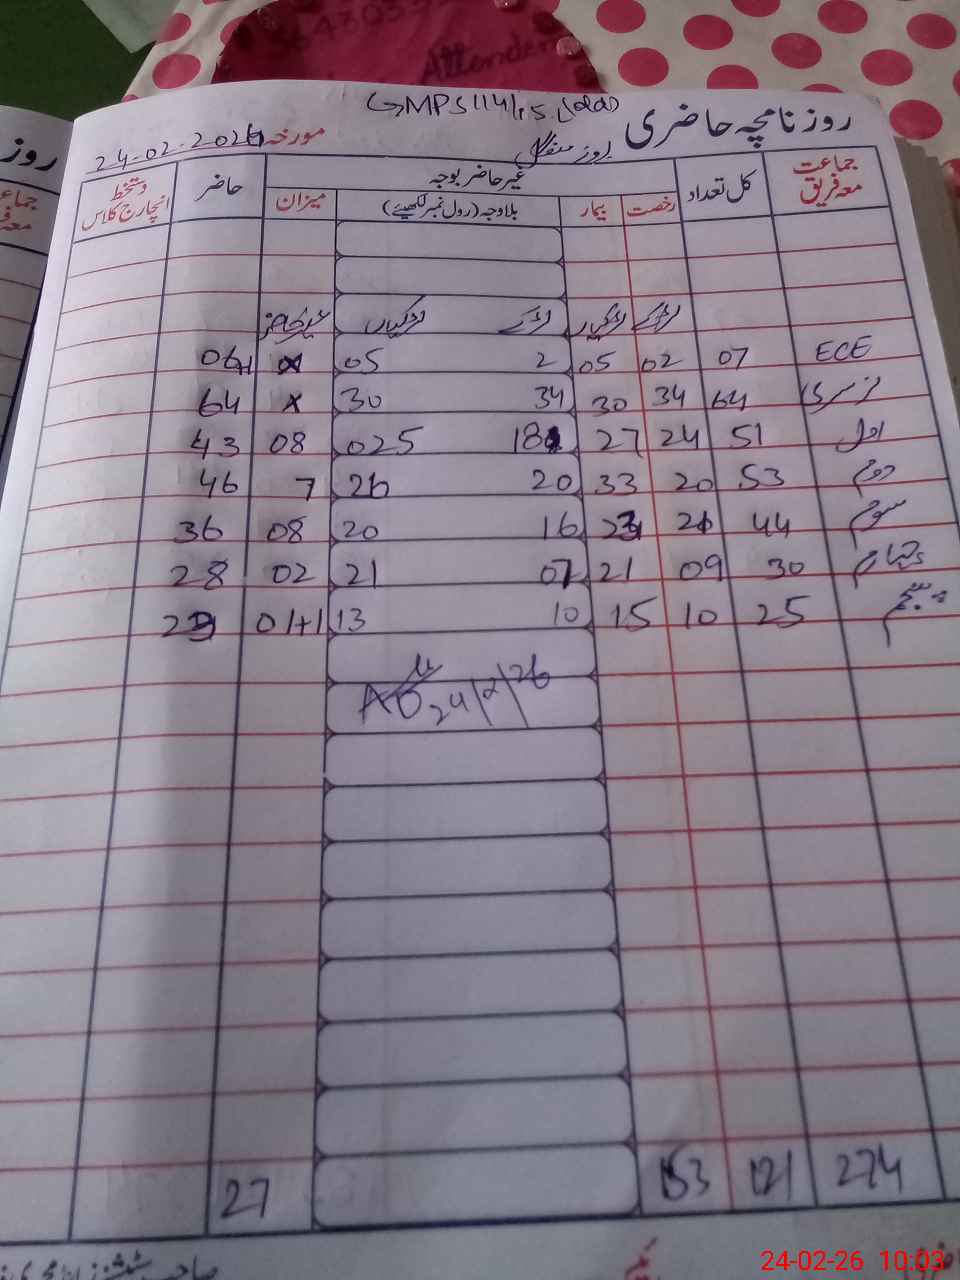 Attendan
GMPS 114/15.L
روزنامچہ حاضری
بروز منگل
مورخہ 24-02-2026
جماعت معہ فریق
کل تعداد
غیر حاضر بوجہ
حاضر
دستخط انچارج کلاس
رخصت
بیمار
بلاوجہ (رول نمبر لکھیئے)
میزان
لڑکے لڑکیاں لڑکے لڑکیاں غیر حاضر
ECE 07 02 05 2 05
نرسری 64 34 30 34 30 x 64
اول 51 24 27 18 025 08 43
دوم 53 20 33 20 26 7 46
سوم 44 21 23 16 20 08 36
چہارم 30 09 21 07 21 02 28
پنجم 25 10 15 10 13 01+1 23
24/2/26
274 121 153
27
24-02-26 10:03